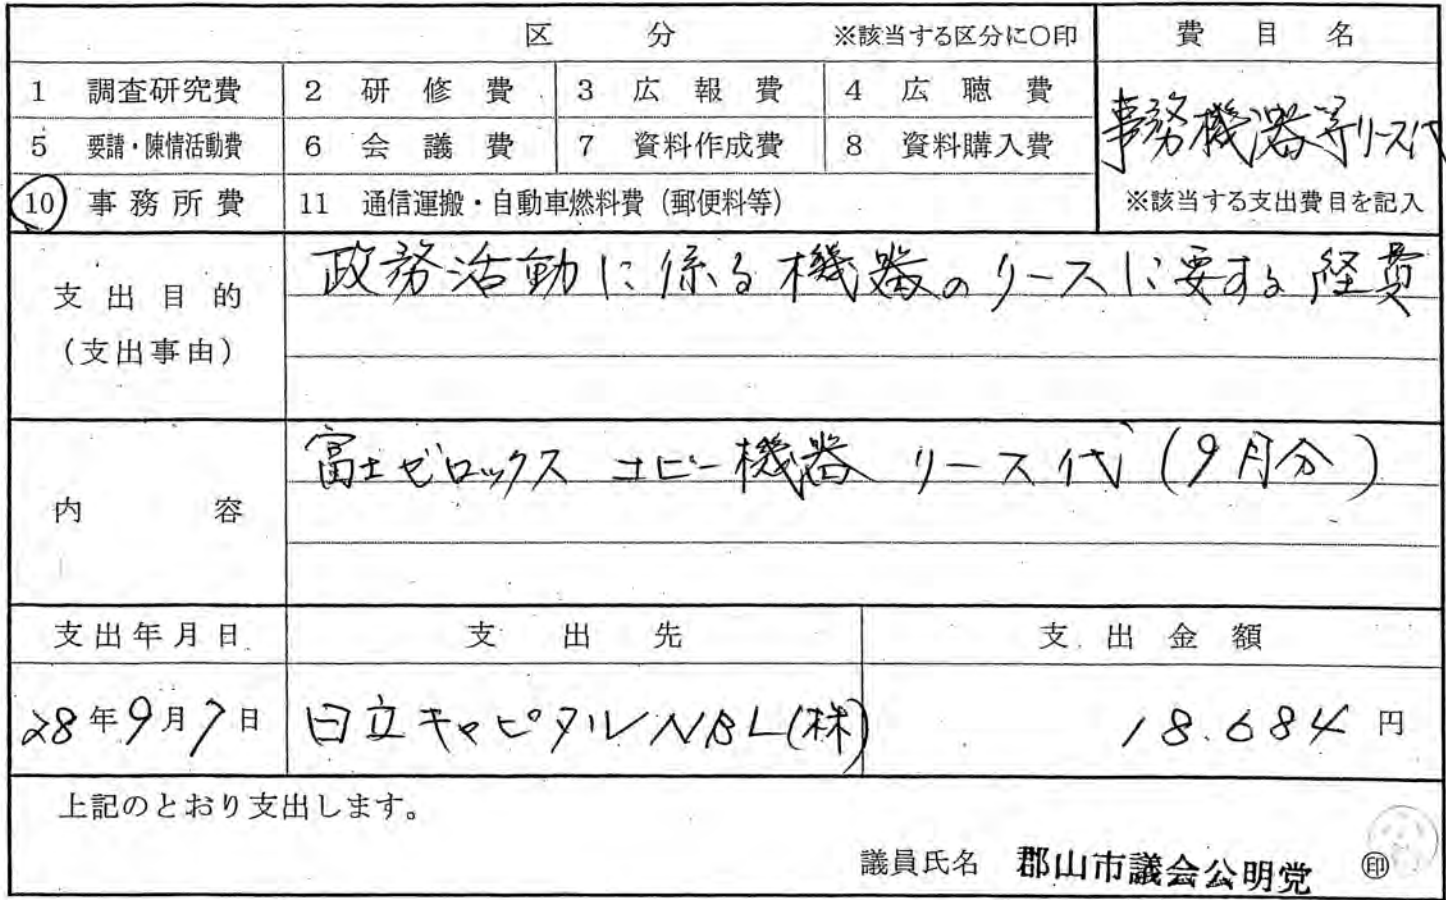 区 分 ※該当する区分に○印 費 目 名
1 調査研究費 2 研 修 費 3 広 報 費 4 広 聴 費
事務機器等リース代
5 要請・陳情活動費 6 会 議 費 7 資料作成費 8 資料購入費
10 事 務 所 費 11 通信運搬・自動車燃料費（郵便料等） ※該当する支出費目を記入
政務活動に係る機器のリースに要する経費
支 出 目 的
（支出事由）
富士ゼロックス コピー機器 リース代（9月分）
内 容
支出年月日 支 出 先 支 出 金 額
28年9月7日 日立キャピタルNBL(株) 18.684 円
上記のとおり支出します。
議員氏名 郡山市議会公明党 ㊞